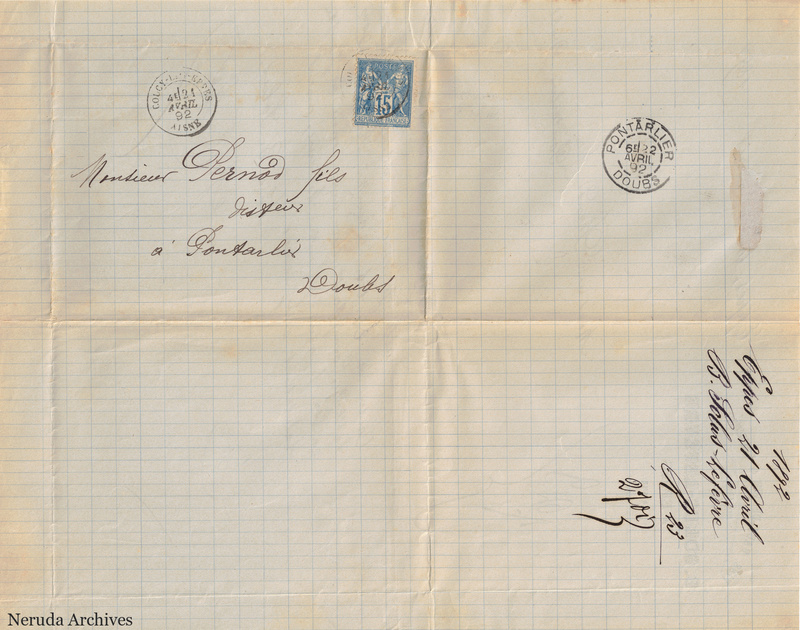 COUCY-LES-EPPES
21
AVRIL
92
AISNE
15
REPUBLIQUE FRANÇAISE
PONTARLIER
6E 22
AVRIL
92
DOUBS
Monsieur Pernod fils
à Pontarlier
Doubs
1892
Eppes 21 Avril
B. Lefèvre
R 23
Neruda Archives